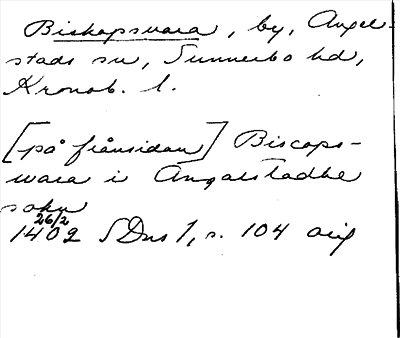 Biskopsvara, by, Angel-
stads sn, Sunnerbo hd,
Kronob. l.
[på frånsidan] Biscops-
wara i Angalstadhe
sokn
26/2
1402 SDns 1, s. 104 orig